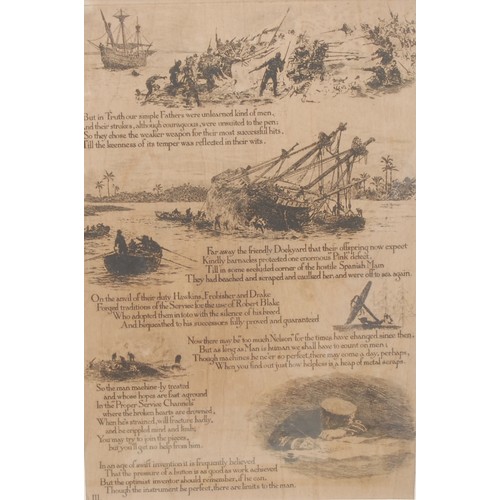 But in Truth our simple Fathers were unlearned kind of men,
And their strokes, although courageous, were unsuited to the pen;
So they chose the weaker weapon for their most successful hits,
Till the keenness of its temper was reflected in their wits.
Far away the friendly Dockyard that their offspring now expect
Kindly barnacles protected one enormous "Pink" defect,
Till in some secluded corner of the hostile Spanish Main
They had beached and scraped and caulked her, and were off to sea again.
On the anvil of their duty Hawkins, Frobisher and Drake
Forged traditions of the Service for the use of Robert Blake
Who adopted them in toto with the silence of his breed
And bequeathed to his successors fully proved and guaranteed
Now there may be "too much Nelson" for the times have changed since then,
But as long as Man is human we shall have to count on men;
Though machines be ne'er so perfect, there may come a day, perhaps,
When you find out just how helpless is a heap of metal scraps.
So the man machine-ly treated
and whose hopes are fast aground
In the "Proper Service Channels"
where the broken hearts are drowned,
When he's strained, will fracture badly,
and be crippled mind and limb;
You may try to join the pieces,
but you'll get no help from him.
In an age of swift invention it is frequently believed
That the pressure of a button is as good as work achieved
But the optimist inventor should remember, if he can,
Though the instrument be perfect, there are limits to the man.